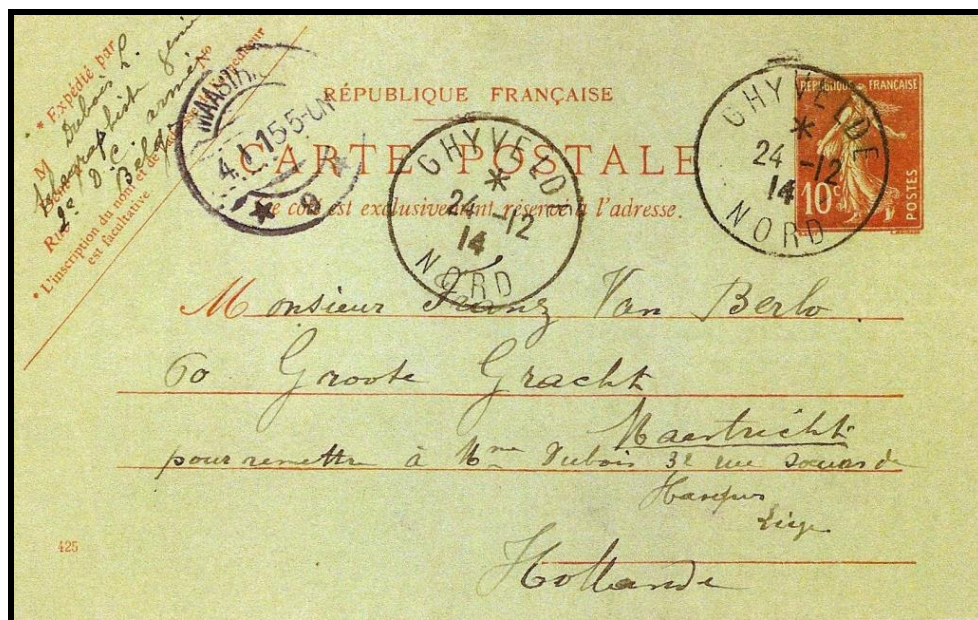 * Expédié par
M Dubois L.
télégraphiste génie
2e D. C. armée
Belge
Rue
No
* L'inscription du nom et de
est facultative
MAASTR
4.1.15 5-6N
* 9 *
RÉPUBLIQUE FRANÇAISE
CARTE POSTALE
Ce côté est exclusivement réservé à l'adresse.
GHYVELDE
*
24 -12
14
NORD
GHYVELDE
*
24 -12
14
NORD
RÉPUBLIQUE FRANÇAISE
10c
POSTES
Monsieur Franz Van Berlo.
60 Groote Gracht
Maestricht
pour remettre à Mme Dubois 32 rue de
Liège
Hollande
425